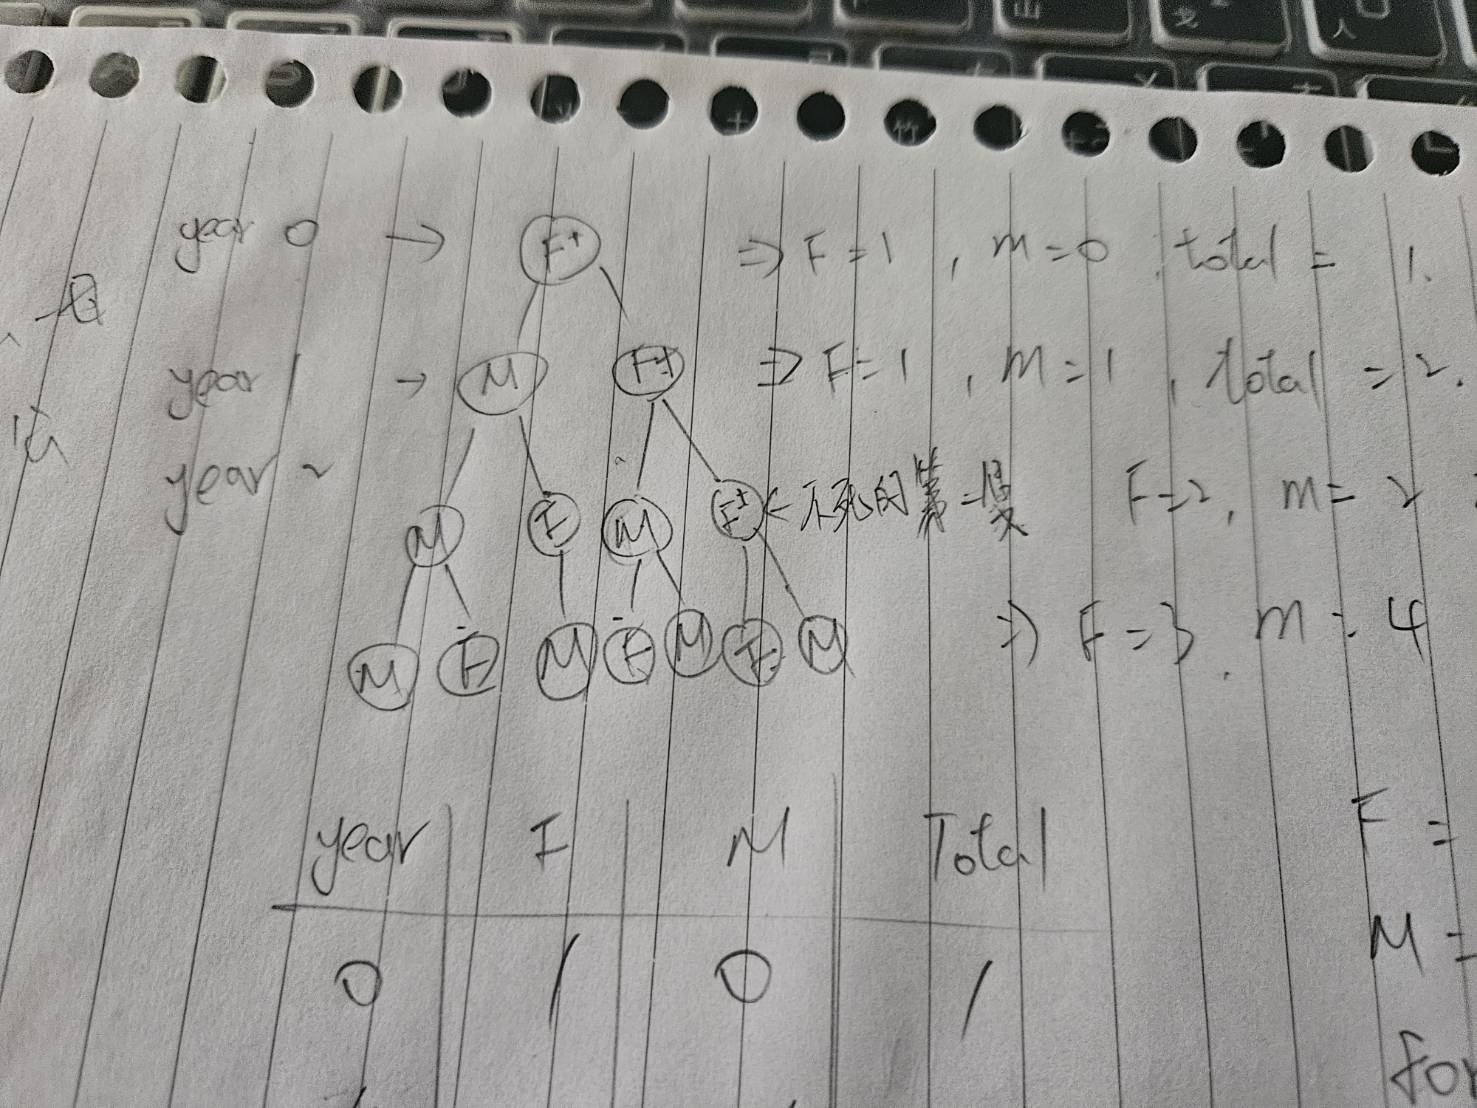 year 0 → F+ ⇒ F=1, m=0, total = 1.
year 1 → M F+ ⇒ F=1, m=1, total = 2.
year 2
M F M F+ ← 不死的第一隻 F=2, m= 2
M F M F M F M ⇒ F=3, m= 4
year F M Total
0 1 0 1
F =
M =
for